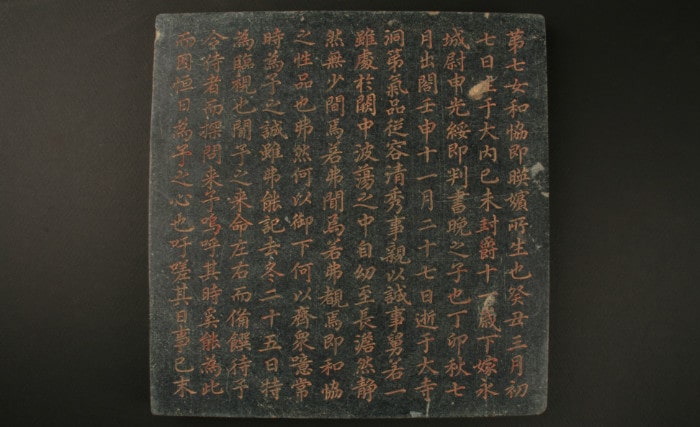 第七女和協即暎嬪所生也癸丑三月初
七日生于大內己未封爵十一歲下嫁永
城尉申光綏即判書晚之子也丁卯秋七
月出閤壬申十一月二十七日逝于大寺
洞第氣品從容清秀事親以誠事舅若一
雖處於闕中波蕩之中自幼至長澹然靜
然無少間焉若弗聞焉若弗覩焉即和協
之性品也弗然何以御下何以齊衆噫常
時為予之誠雖弗能記去冬二十五日特
為臨視也聞予之來命左右而備饌待予
令侍者而探問来予嗚呼其時奚能為此
而因恒日為予之心也吁嗟其日事已末